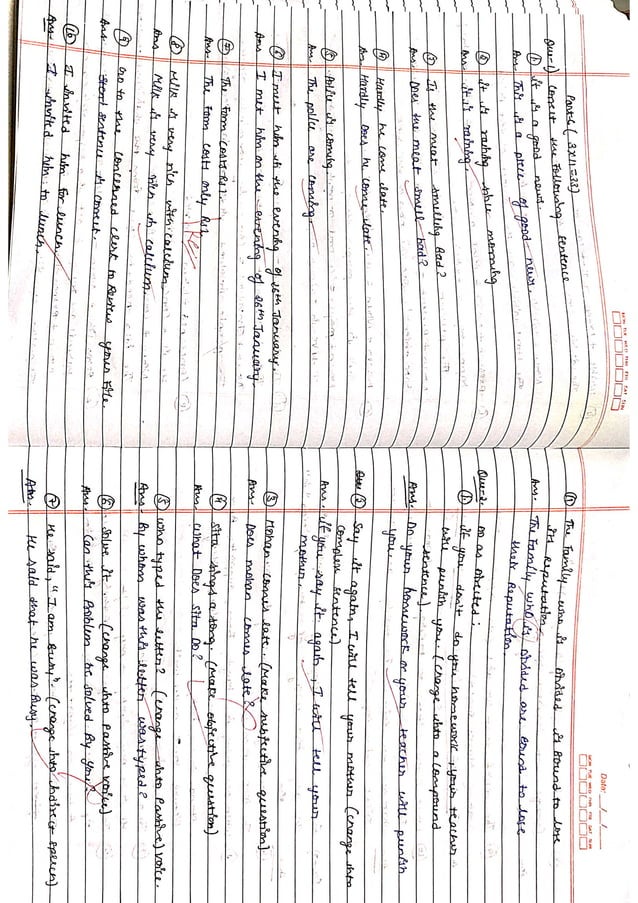 Part-C (3x11=33)
Que-1) Correct the following sentence
① it is a good news.
Ans. This is a piece of good news.
② it is raining since morning
Ans. it is raining.
③ Is the meat smelling Bad?
Ans. Does the meat smell Bad?
④ Hardly he come late.
Ans. Hardly Does he come late.
⑤ Police is coming.
Ans. The police are coming.
⑥ I meet him in the evening of 26th January.
Ans. I met him on the evening of 26th January.
⑦ The Form costs Rs1.
Ans. The Form cost only Rs1.
⑧ Milk is very rich with calcium.
Ans. Milk is very rich in calcium.
⑨ Go to the concerned clerk to your File.
Ans. sentence is correct.
⑩ I invited him for lunch.
Ans. I invited him to lunch.
⑪ The Family who is divided is Bound to lose
its Reputation.
Ans. The Family who is divided are Bound to lose
their Reputation.
Que-2. Do as Directed:
① if you don't do you homework, your teacher
will punish you. (change into a compound
sentence)
Ans. Do your homework or your teacher will punish
you.
② Say it again, I will tell your mother (change into
complex sentence)
Ans. if you say it again, I will tell your
mother.
③ Mohan comes late. (make subjective question)
Ans. Does mohan comes late?
④ Sita sings a song. (make objective question)
Ans. What Does Sita Do?
⑤ who typed the letter? (change into Passive) voice.
Ans. By whom was this letter was typed?
⑥ Solve it. (change into Passive voice)
Ans. Can this Problem be solved By you?
⑦ He said, "I am Busy". (change into Indirect speech)
Ans. He said that he was Busy.
Date: / /